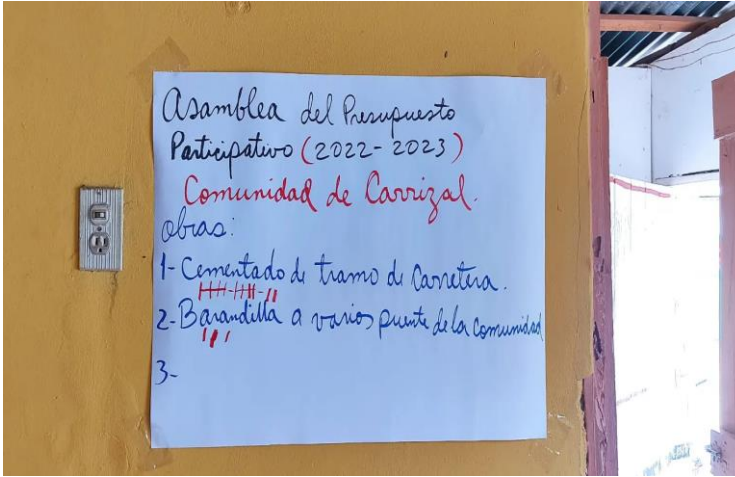 Asamblea del Presupuesto
Participativo (2022-2023)
Comunidad de Carrizal.
obras:
1- Cementado de tramo de Carretera.
2- Barandilla a varios puente de la comunidad
3-